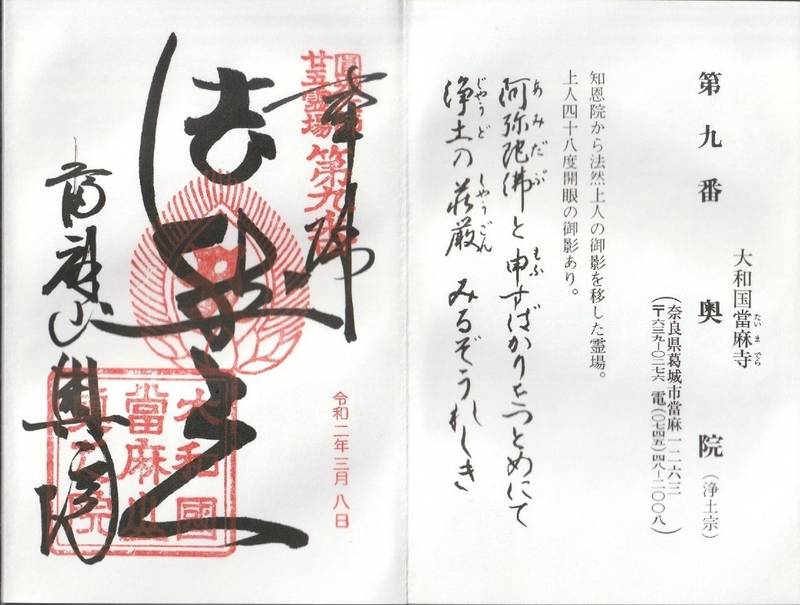 第九番 奥院(浄土宗)
大和国當麻寺
たいまでら
(奈良県葛城市當麻一二六三
〒六三九—〇二七六 電(〇七四五)四八—二〇〇八)
知恩院から法然上人の御影を移した霊場。
上人四十八度開眼の御影あり。
あみだぶ もふ
阿弥陀佛と申すばかりをつとめにて
じやうど しやうごん
浄土の荘厳 みるぞうれしき
圓光大師
廿五霊場
第九番
奉拝
法然上人
當麻山奥院
大和國
當麻山
奥之院
令和二年三月八日